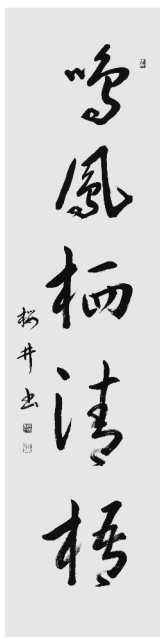 鳴鳳栖清梧
桜井書